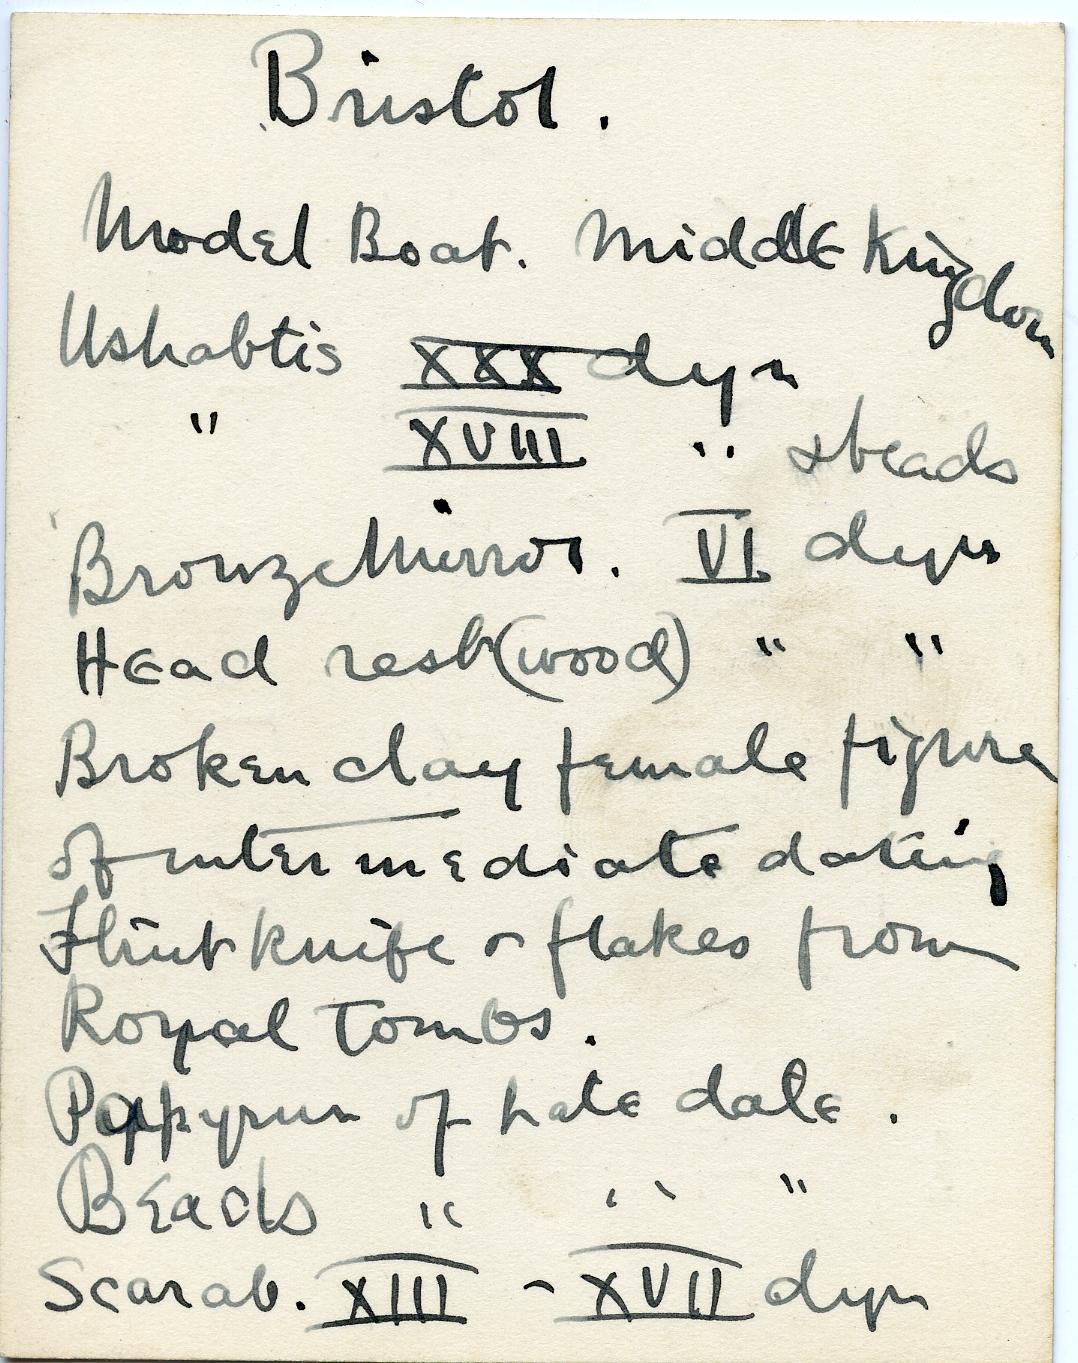 Bristol.
Model Boat. Middle Kingdom
Ushabtis XXX dyn
" XVIII " & beads
Bronze Mirror. VI dyn
Head rest (wood) " "
Broken clay female figure
of intermediate dating
Flint knife & flakes from
Royal Tombs.
Pappyrus of late date.
Beads " " "
Scarab. XIII - XVII dyn